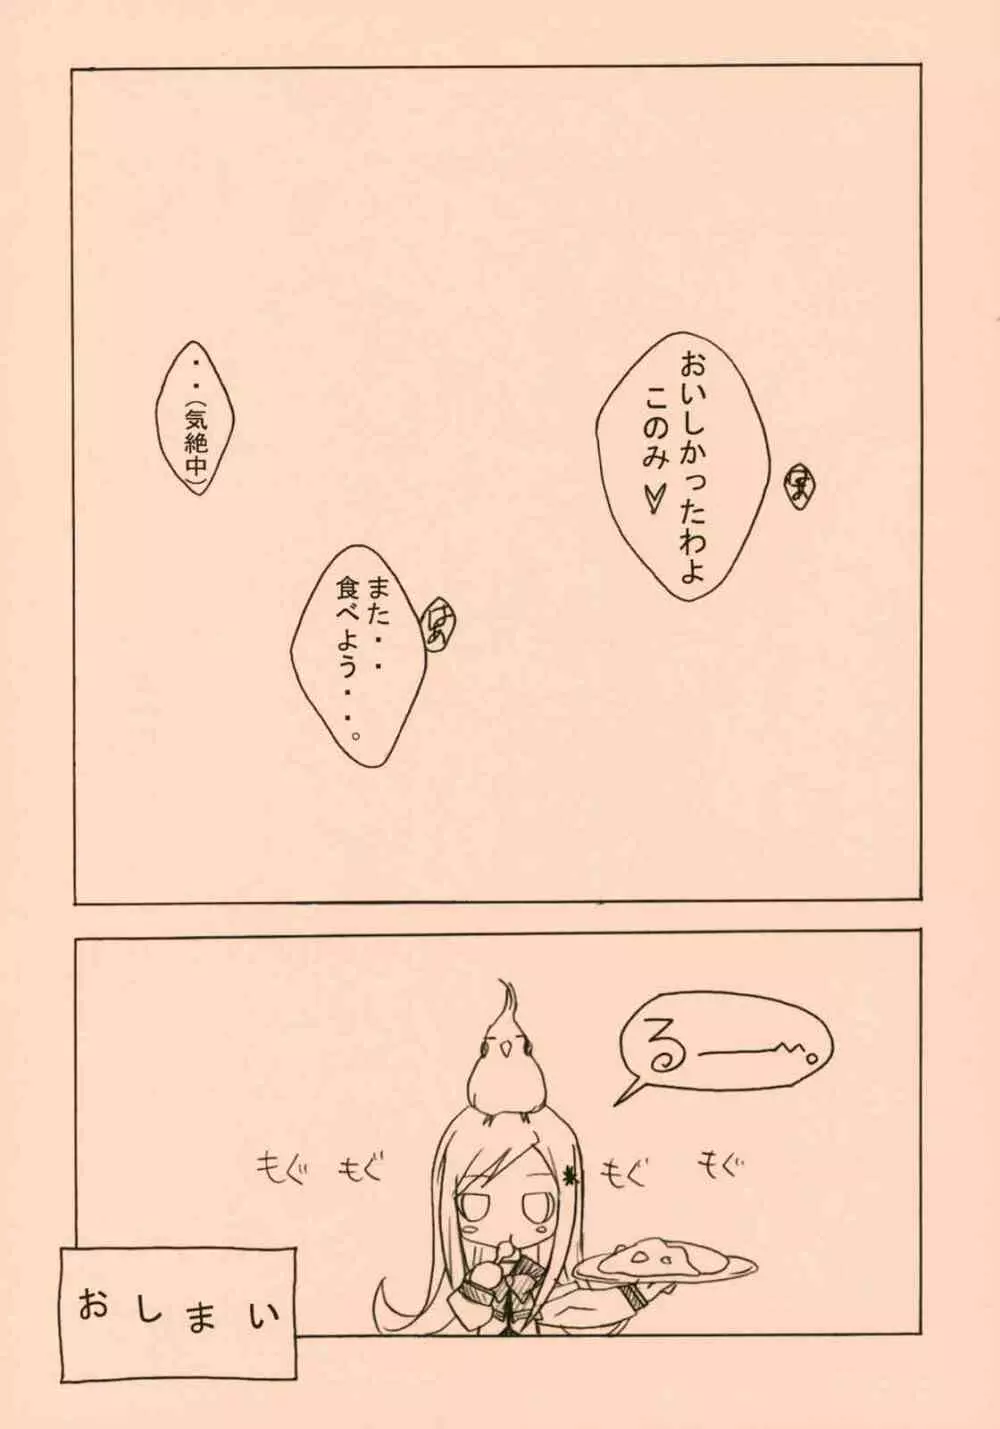 はぁ
おいしかったわよ
このみ♡
はぁ
また・・
食べよう・・・。
・・(気絶中)
るー――。
もぐ もぐ もぐ もぐ
おしまい